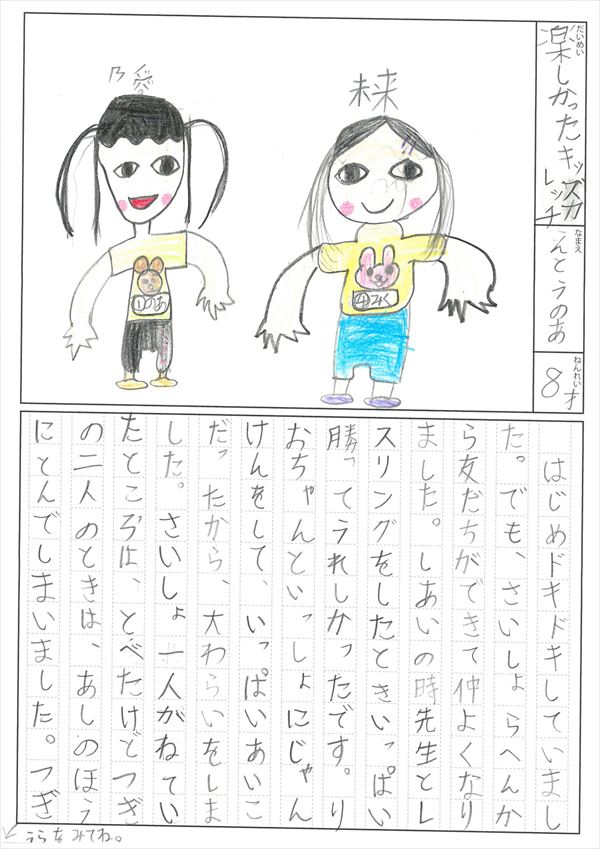 だいめい
楽しかったキッズカレッチ
なまえ
えとうのあ
ねんれい
8才
未来
乃愛
④みく
①のあ
はじめドキドキしていまし
た。でも、さいしょらへんか
ら友だちができて仲よくなり
ました。しあいの時先生とレ
スリングをしたときいっぱい
勝ってうれしかったです。り
おちゃんといっしょにじゃん
けんをして、いっぱいあいこ
だったから、大わらいをしま
した。さいしょ一人がねてい
たところは、とべたけどつぎ
の二人のときは、あしのほう
にとんでしまいました。つぎ
うらをみてね。